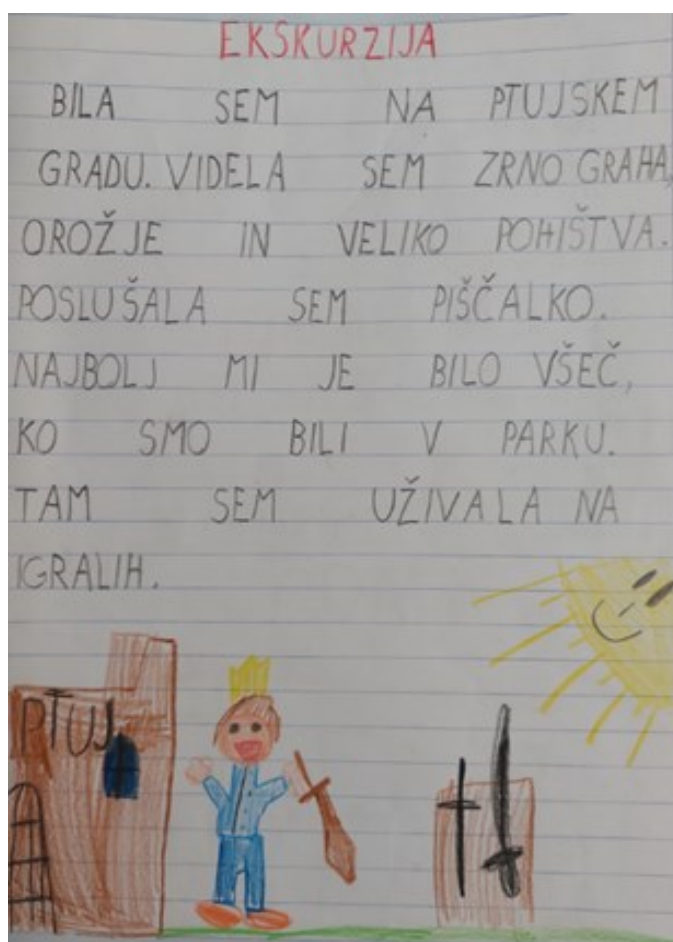 EKSKURZIJA
BILA SEM NA PTUJSKEM
GRADU. VIDELA SEM ZRNO GRAHA,
OROŽJE IN VELIKO POHIŠTVA.
POSLUŠALA SEM PIŠČALKO.
NAJBOLJ MI JE BILO VŠEČ,
KO SMO BILI V PARKU.
TAM SEM UŽIVALA NA
IGRALIH.
PTUJ